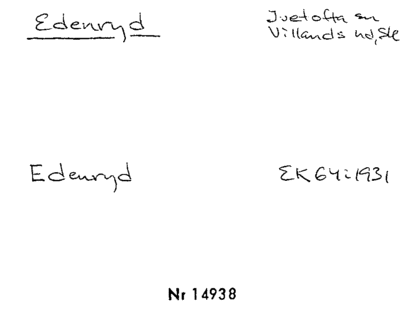 Edenryd
Ivetofta sn
Villands hd, Skå
Edenryd
EK 64:1931
Nr 14938